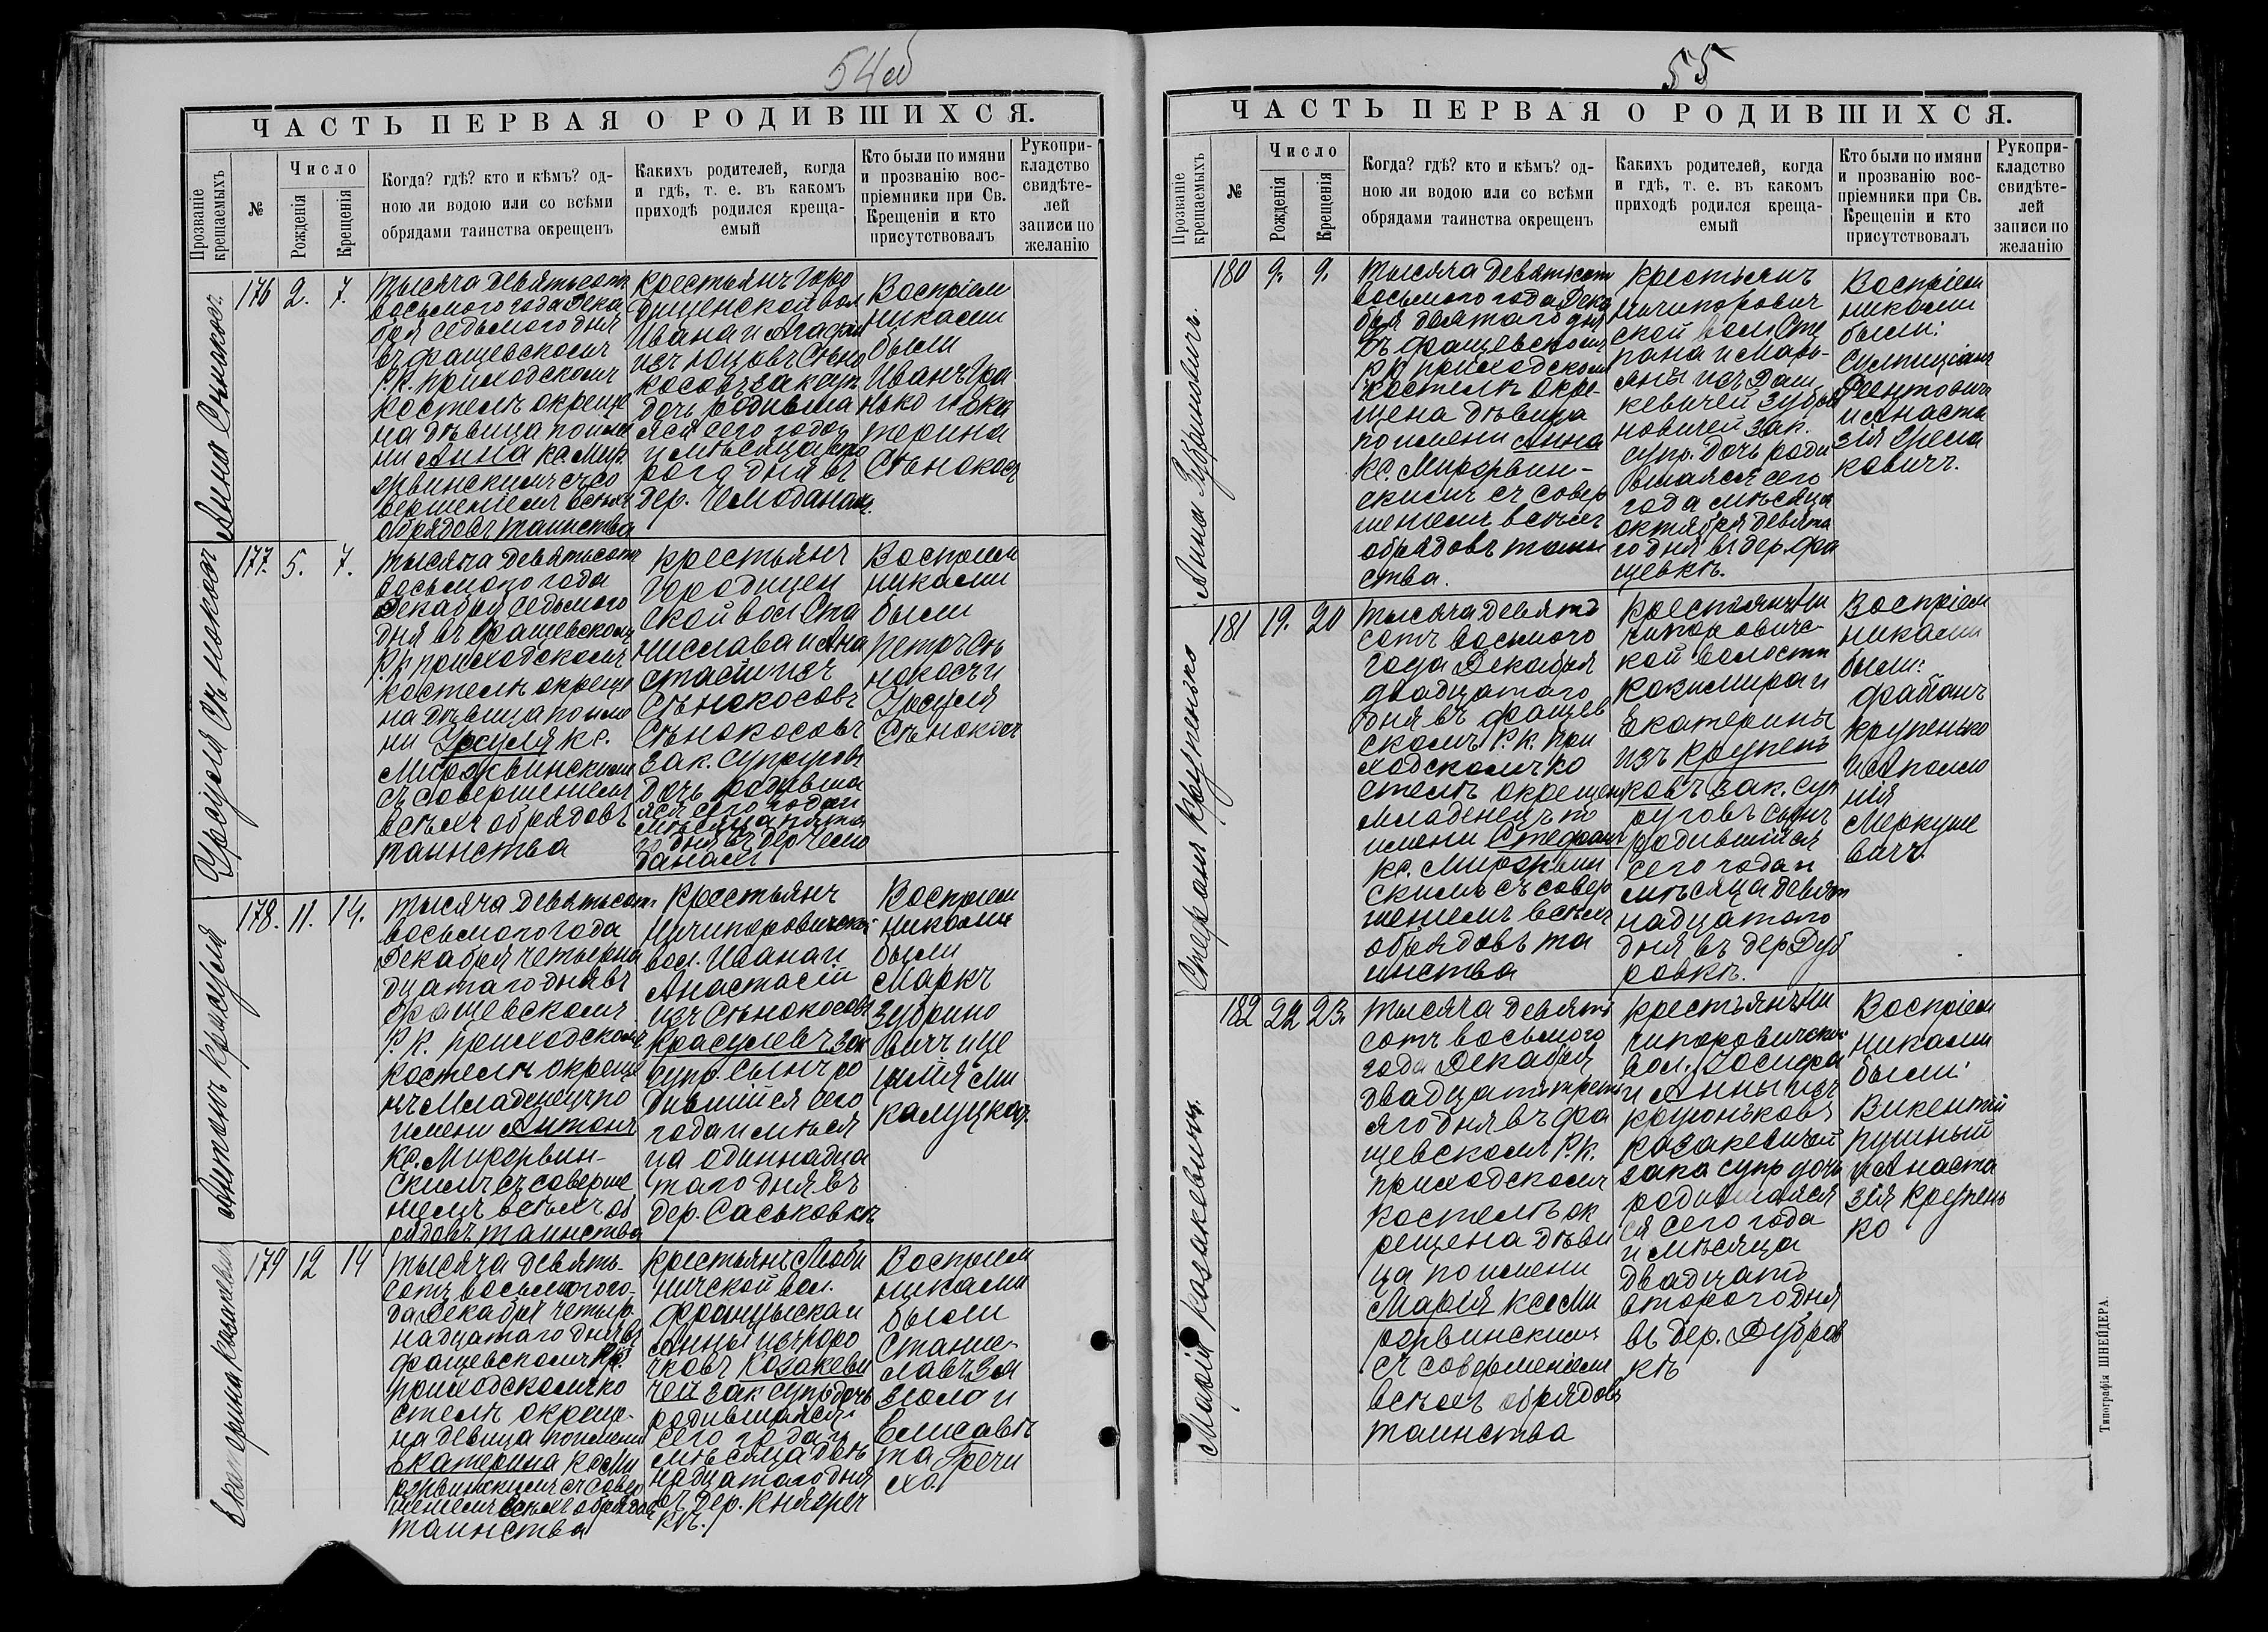 54об
ЧАСТЬ ПЕРВАЯ О РОДИВШИХСЯ.
Прозваніе крещаемыхъ
№
Число
Рожденія
Крещенія
Когда? гдѣ? кто и кѣмъ? од-
ною ли водою или со всѣми
обрядами таинства окрещенъ
Какихъ родителей, когда
и гдѣ, т. е. въ какомъ
приходѣ родился креща-
емый
Кто были по имяни
и прозванію вос-
пріемники при Св.
Крещеніи и кто
присутствовалъ
Рукопри-
кладство
свидѣте-
лей
записи по
желанію
Анна Сѣнокосъ
176
2.
7.
Тысяча девятьсотъ
восьмого года Дека
бря седьмого дня
въ Фащевскомъ
Р. К. приходскомъ
костелѣ окреще
на дѣвица по име
ни Анна кс. Миро
рвинскимъ съ со
вершеніемъ всѣхъ
обрядовъ таинства
крестьянъ Горо
дищенской вол
Ивана и Агафіи
изъ
Сѣно
косовъ зак суп
дочь родивша
яся сего года
и мѣсяца вто
рого дня въ
дер. Чемоданахъ.
Воспріем
никами
были
Иванъ Гра
нько и Ека
терина
Сѣнокосъ
Урсуля Сѣнокосъ
177.
5.
7.
Тысяча девятьсотъ
восьмого года
Декабря седьмого
дня въ Фащевскомъ
Р. К приходскомъ
костелѣ окреще
на дѣвица по име
ни Урсуля кс.
съ совершеніемъ
всѣхъ обрядовъ
таинства
крестьянъ
Городищен
ской вол Ста
нислава и Ана
стасіи изъ
Сѣнокосовъ
Сѣнокосовъ
зак. супруговъ
дочь родивша
яся сего года и
мѣсяца пята
го дня въ дер Чемо
данахъ
Воспріем
никами
были
Петръ Сѣ
нокосъ и
Урсуля
Сѣнокосъ
Антонъ Красуля
178.
11.
14.
Тысяча девятьсотъ
восьмого года
Декабря четырна
дцатаго дня въ
Фащевскомъ
Р. К. приходскомъ
костелѣ окреще
нъ младенецъ по
имени Антонъ
кс.
скимъ съ соверше
ніемъ всѣхъ об
рядовъ таинства
Крестьянъ
Ничипоровичской
вол. Ивана и
Анастасіи
изъ Сѣнокосовъ
Красулевъ зак
супр. сынъ ро
дившійся сего
года и мѣся
ца одиннадца
таго дня въ
дер. Саськовкѣ
Воспріем
никами
были
Маркъ
Зубрино
вичъ и Це
цилія Ми
калуцкая.
Екатерина Козакевичъ
179
12
14
Тысяча девять-
сотъ восьмого го
да Декабря четыр
надцатаго дня въ
Фащевскомъ Р.К.
приходскомъ ко
стелѣ окреще-
на девица по имени
Екатерина кс Ми
съ совер
шеніемъ всѣхъ обрядовъ
таинства
крестьянъ Люби
ничской вол.
Францыска и
Анны изъ
Козакеви
чей зак супр дочь
родившаяся
сего года и
мѣсяца двѣ
надцатаго дня
въ дер. Княгрѣч
кѣ.
Воспріем
никами
были
Станис-
лавъ
и
Елисаве
та Гречи
хо.
55
ЧАСТЬ ПЕРВАЯ О РОДИВШИХСЯ.
Прозваніе крещаемыхъ
№
Число
Рожденія
Крещенія
Когда? гдѣ? кто и кѣмъ? од-
ною ли водою или со всѣми
обрядами таинства окрещенъ
Какихъ родителей, когда
и гдѣ, т. е. въ какомъ
приходѣ родился креща-
емый
Кто были по имяни
и прозванію вос-
пріемники при Св.
Крещеніи и кто
присутствовалъ
Рукопри-
кладство
свидѣте-
лей
записи по
желанію
Анна Зубриновичъ.
180
9.
9.
Тысяча девятьсотъ
восьмого года Дека
бря девятаго дня
въ Фащевскомъ
Р К приходскомъ
костелѣ окре-
щена дѣвица
по имени Анна
скимъ съ совер
шеніемъ всѣхъ
обрядовъ таин
ства.
крестьянъ
Ничипорович
ской вол Сте
пана и Марь-
яны изъ Даш
кевичей Зубри
новичей зак.
супр. дочь роди
вшаяся сего
года мѣсяца
октября девята
го дня въ дер. Фа
щевкѣ.
Воспріем
никами
были:
и Анаста
зія
Стефанъ Крупенько
181
19.
20
Тысяча девять
сотъ восьмого
года Декабря
двадцатаго
дня въ Фащев
скомъ Р. К. при
ходскомъ ко
стелѣ окрещенъ
младенецъ по
имени Стефанъ
скимъ съ совер
шеніемъ всѣхъ
обрядовъ та
инства
крестьянъ Ни
чипоровичс-
кой волости
Казимира и
Екатерины
изъ Крупень
ковъ зак. суп
руговъ сынъ
родившійся
сего года и
мѣсяца девят
надцатаго
дня въ дер Дуб
ровкѣ.
Воспріем
никами
были:
Фабіанъ
Крупенько
и Аполло
нія
Меркуше
вичъ.
Марія Козакевичъ.
182
22
23.
Тысяча девять
сотъ восьмого
года Декабря
двадцать треть
яго дня въ Фа
щевскомъ Р.К.
приходскомъ
костелѣ ок
рещена дѣви
ца по имени
Марія кс Ми
рорвинскимъ
съ совершеніемъ
всѣхъ обрядовъ
таинства
крестьянъ Ни
чипоровичской
вол. Іосифа
и Анны изъ
Козакевичей
зака супр дочь
родившаяся
ся сего года
и мѣсяца
двадцать
второго дня
въ дер. Дубров
кѣ
Воспріем
никами
были:
Викентій
Пушный
и Анаста
зія Крупень
ко
Типографія ШНЕЙДЕРА.